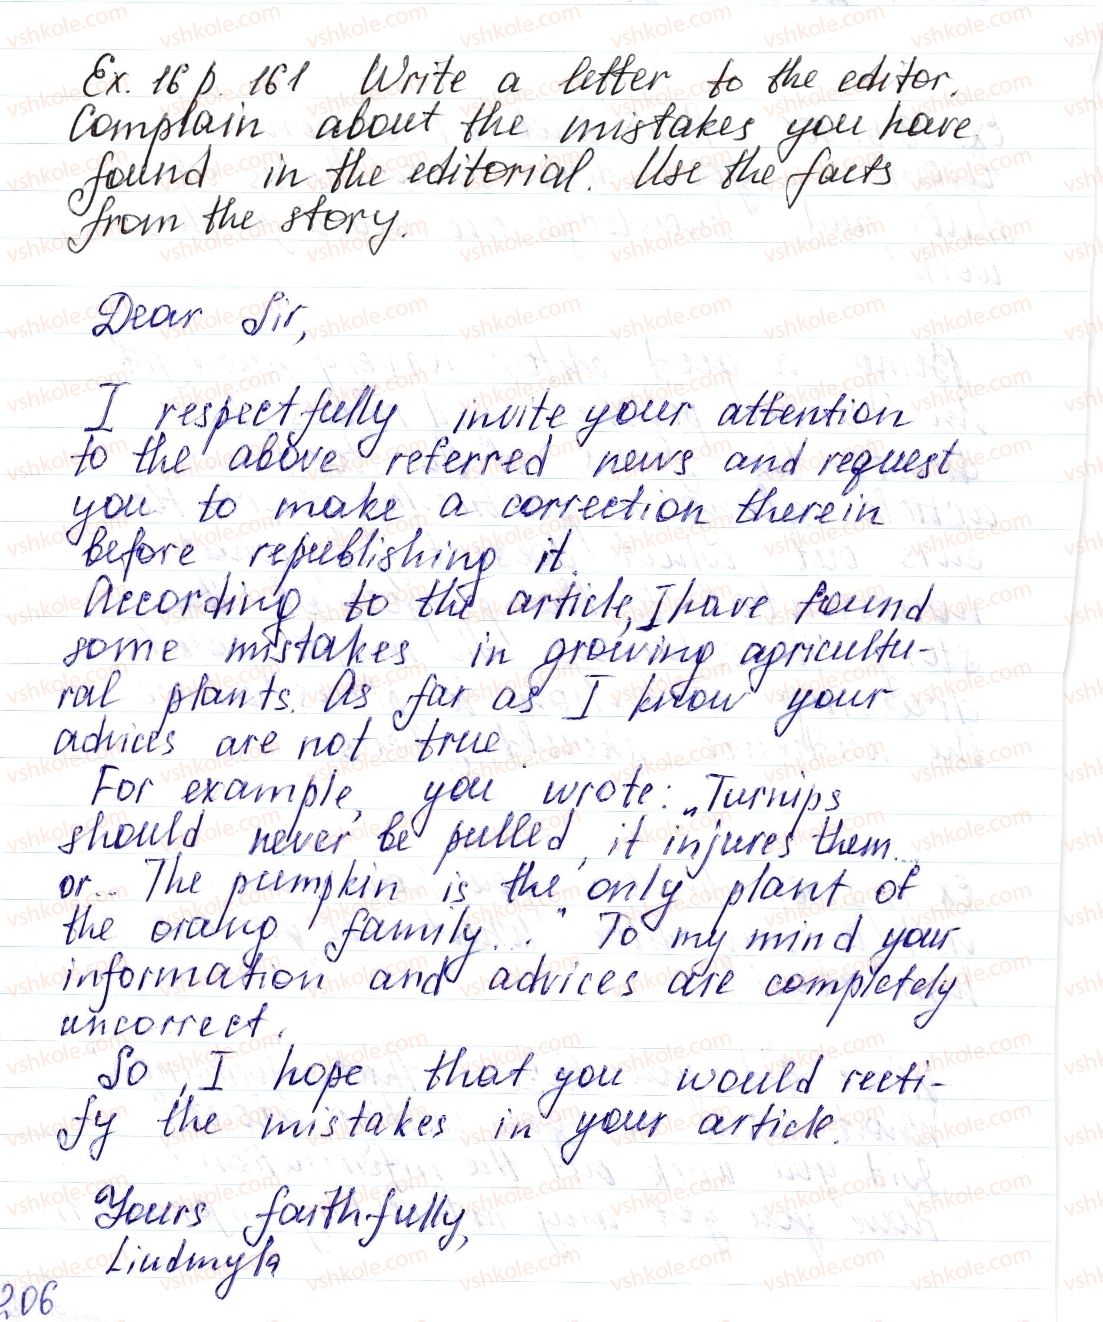 Ex. 16 p. 161 Write a letter to the editor.
Complain about the mistakes you have
found in the editorial. Use the facts
from the story.
Dear Sir,
I respectfully invite your attention
to the above referred news and request
you to make a correction therein
before republishing it.
According to the article, I have found
some mistakes in growing agricultu-
ral plants. As far as I know your
advices are not true
For example, you wrote: „Turnips
should never be pulled, it injures them...
or... The pumpkin is the only plant of
the orang family..." To my mind your
information and advices are completely
uncorrect.
So, I hope that you would recti-
fy the mistakes in your article.
Yours faithfully,
Liudmyla
206
vshkole.com